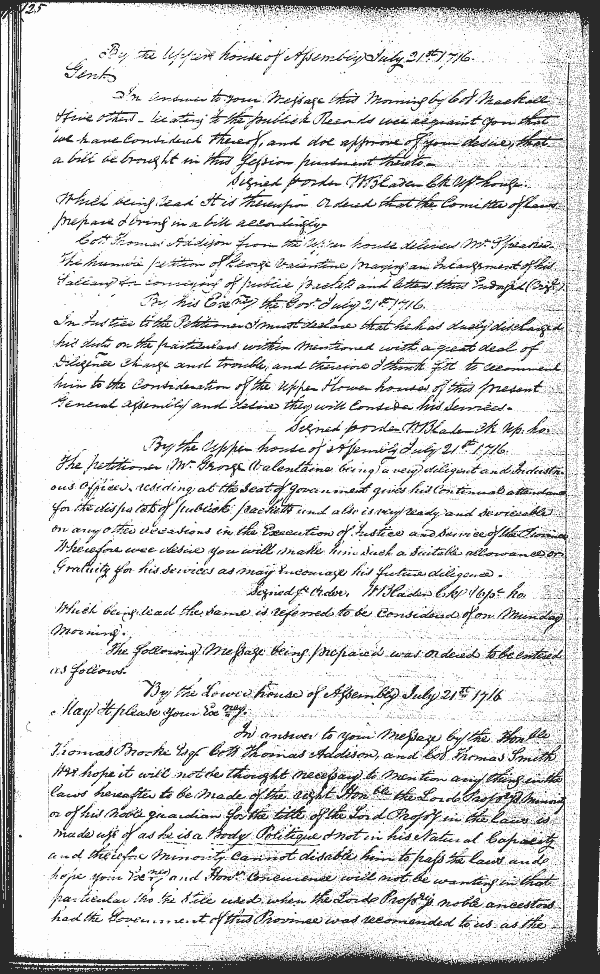 125
By the Upper house of Assembly July 21st 1716.
Gent
In answer to your Message this Morning by Col Mackall
& five others relating to the publick Records wee acquaint you that
we have Considered thereof, and doe approve of your desire, that
a bill be brought in this Session pursuant thereto
Signed p order WBladen Ck Up house.
Which being read It is thereupon Ordered that the Comittee of Laws
prepare & bring in a bill accordingly
Coll Thomas Addison from the Upper house delivers Mr Speaker
The humble petition of George Valentine praying an Enlargement of his
Sallary for conveying of public packets and letters thus Endorsed (Vizt)
By his Exncy the Govr July 21st 1716.
In Justice to the Petitioner I must declare that he has duely discharged
his duty on the particulars within mentioned with a great deal of
Diligence Charge and trouble, and therefore I think fitt to recommend
him to the Consideration of the Upper & Lower houses of this present
General assembly and desire they will Consider his Services.
Signed p order WBladen Ck Up. ho.
By the Upper house of Assembly July 21st 1716
The petitioner Mr George Valenthine being a very diligent and Industri-
ous Officer residing at the Seat of Government gives his Continual attendance
for the dispatch of publick packetts and also is very ready and Serviceable
on any other occasions in the Execution of Justice and Service of the Province
Wherefore wee desire you will make him Such a Suitable allowance or
Gratuity for his Services as may Encourage his future diligence.
Signed p Order. WBladen Ck Up. ho.
Which being read the Same is referred to be Considered of on Munday
Morning.
The following Message being prepared was ordered to be entered
as follows.
By the Lower house of Assembly July 21st 1716
May it please your Exncy.
In answer to your Message by the Honble
Thomas Brooke Esqr Coll Thomas Addison, and Col Thomas Smith
Wee hope it will not be thought necessary to mention any thing in the
laws hereafter to be Made of the right Honble the Lords Propry's Minority
or of his Noble guardian for the title of the Lord Propry in the laws is
made use of as he is a Body Politique & not in his Natural Capacity
and therefor Minority Cannot disable him to pass the laws and
hope your Exncy and Honrs Concurrence will not be wanting in that
particular tho the Stile used when the Lords Propry's noble ancestors
had the Government of this Province was recomended to us as the